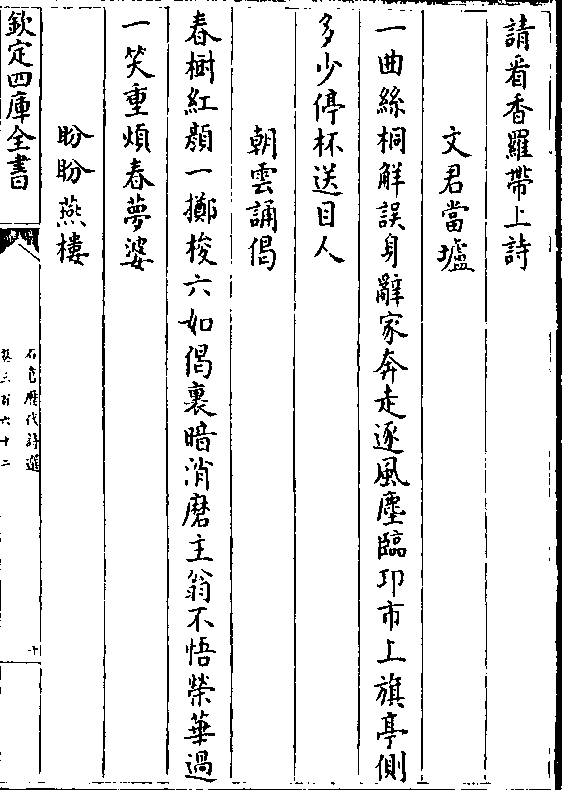 請看香羅帶上詩
文君當壚
一曲絲桐解誤身辭家奔走逐風塵臨卭市上旗亭側
多少停杯送目人
朝雲誦偈
春樹紅顔一擲梭六如偈裏暗消磨主翁不悟榮華過
一笑重煩春夢婆
盼盼燕樓
欽定四庫全書
石倉歴代詩選
卷三百六十二
十